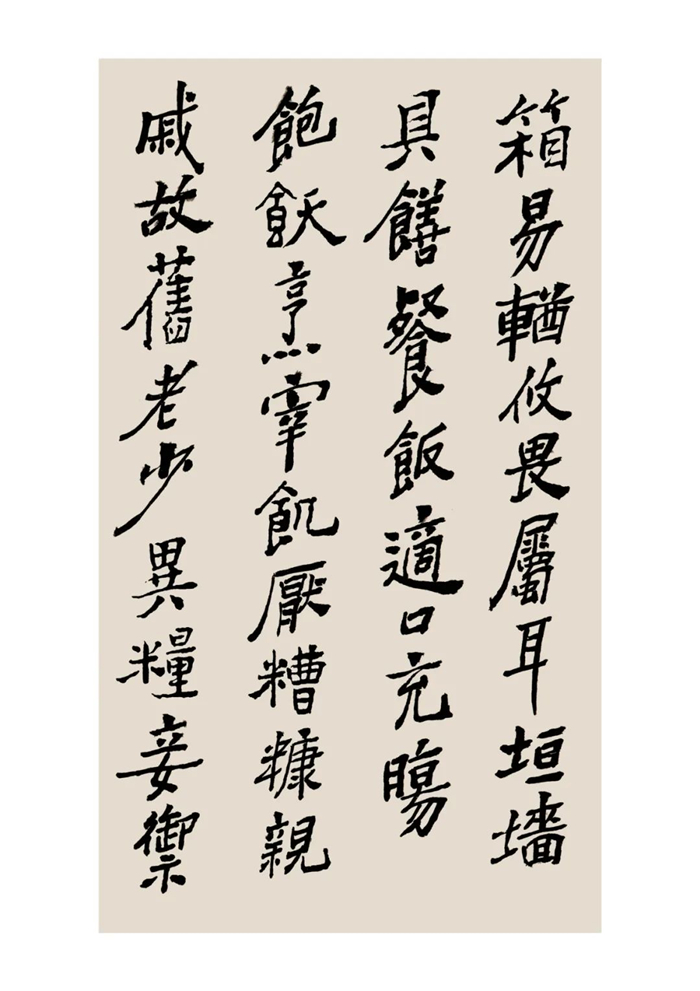 箱易輶攸畏屬耳垣墻
具饍餐飯適口充腸
飽飫烹宰飢厭糟糠親
戚故舊老少異糧妾禦